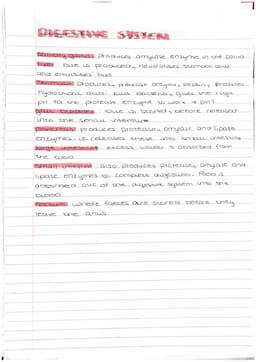 DIGESTIVE SYSTEM
Salivary glands: produces amylase enzyme in the saliva
liver: bile is produced, neutralises stomach acid
and emulsifies fats
produces, protease enzyme, pepsin, produces
hydrochloric acid: kills bacteria, gives the right
pH for the protease enzyme to work →
bile is stored, before released
into the small intestine
pancreas: produces protease, amylase and lipase
enzymes. it releases these into small intestine
large intestine: excess water is absorbed from
the food
small intestine: also produces protease, amylase and
lipase enzymes to complete digestion. Food is
absorbed out of the digestive system into the
blood
rectum: where faeces are stored before they
leave the anus